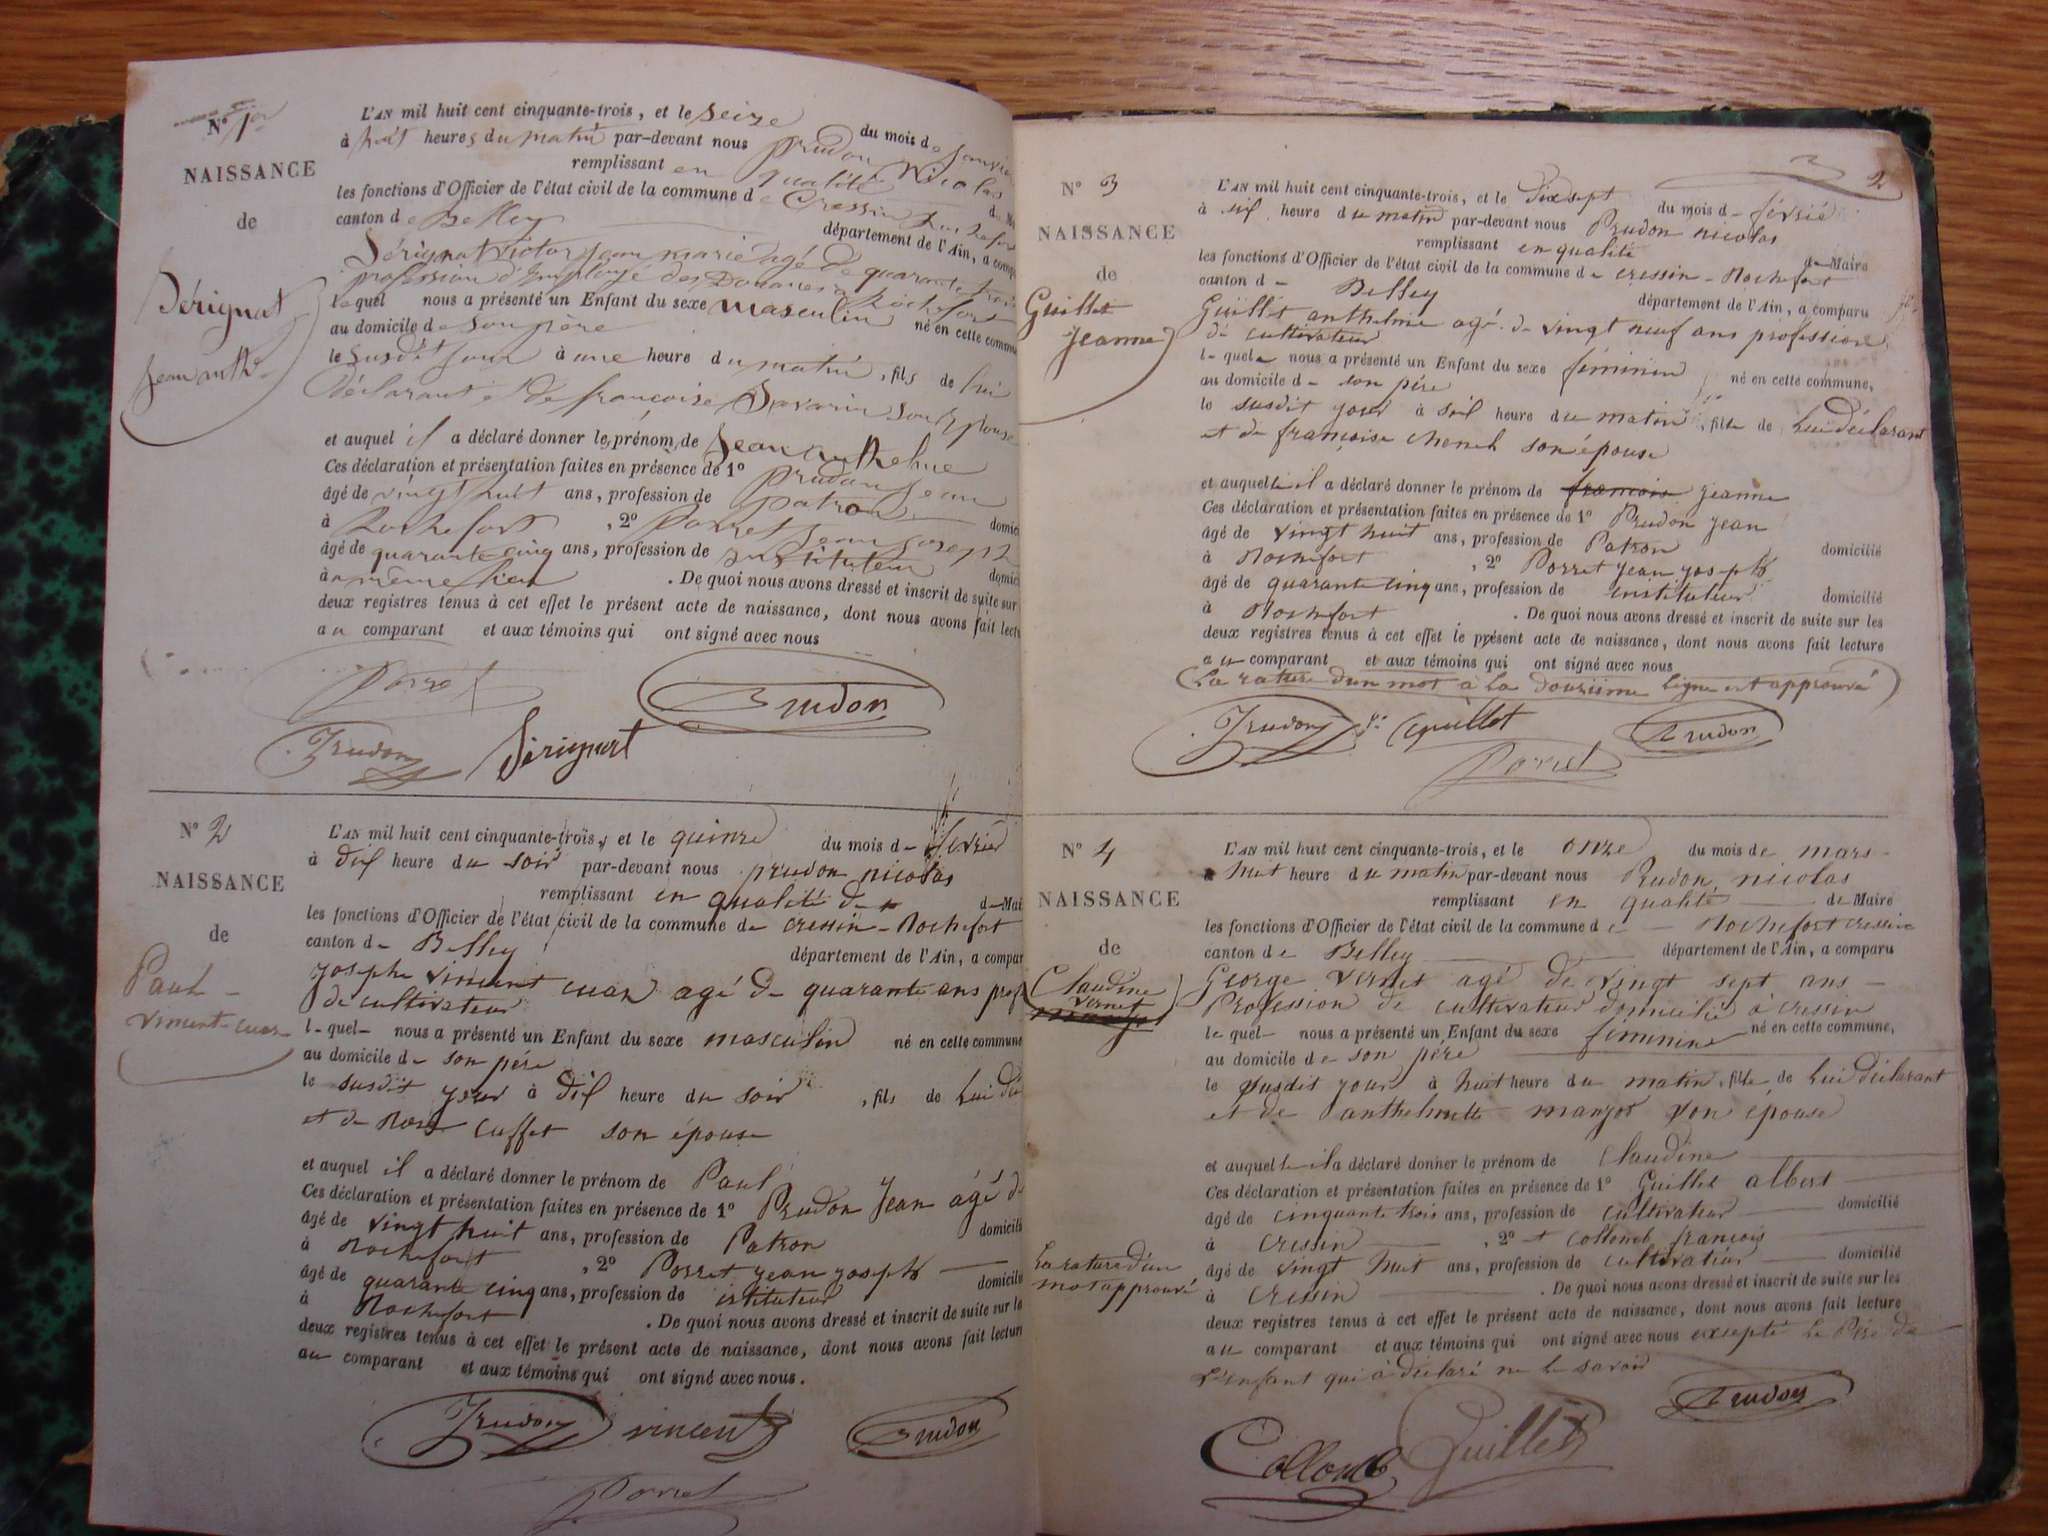 N° 1er
NAISSANCE
de
Sérignat
Jean anth.
L'AN mil huit cent cinquante-trois, et le seize du mois de janvier
à huit heures du matin par-devant nous Prudon Nicolas
remplissant en qualité
les fonctions d'Officier de l'état civil de la commune de Cressin Rochefort
canton de Belley département de l'Ain, a comp
Sérignat Victor jean marie agé de quarante trois
profession d'Employé des Douanes à Rochefort
lequel nous a présenté un Enfant du sexe masculin né en cette commune
au domicile de son père
le susdit jour à une heure du matin, fils de lui
déclarant et de françoise Savarin son Epouse
et auquel il a déclaré donner les prénoms de Jean anthelme
Ces déclaration et présentation faites en présence de 1° Prudon Jean
âgé de vingt huit ans, profession de patron domici
à Rochefort, 2° Porret Jean Joseph
âgé de quarante cinq ans, profession de instituteur domici
à même lieu. De quoi nous avons dressé et inscrit de suite sur
deux registres tenus à cet effet le présent acte de naissance, dont nous avons fait lectu
au comparant et aux témoins qui ont signé avec nous
Porret
Prudon
Prudon
Sérignat
N° 2
NAISSANCE
de
Paul
vincent-cuaz
L'AN mil huit cent cinquante-trois, et le quinze du mois de févrié
à dix heure du soir par-devant nous prudon nicolas
remplissant en qualité de de Mai
les fonctions d'Officier de l'état civil de la commune de cressin-Rochefort
canton de Belley département de l'Ain, a compar
josephe vincent cuaz agé de quarante ans prof
de cultivateur
lequel nous a présenté un Enfant du sexe masculin né en cette commune
au domicile de son pére
le susdit jour à dix heure du soir, fils de lui dé
et de Rose cuffet son épouse
et auquel il a déclaré donner le prénom de Paul
Ces déclaration et présentation faites en présence de 1° Prudon Jean âgé d
âgé de vingt huit ans, profession de Patron domicilié
à Rochefort, 2° Porret jean joseph
âgé de quarante cinq ans, profession de istituteur domicilié
à Rochefort. De quoi nous avons dressé et inscrit de suite sur le
deux registres tenus à cet effet le présent acte de naissance, dont nous avons fait lecture
au comparant et aux témoins qui ont signé avec nous.
Prudon
vincent
Prudon
Porret
2
N° 3
NAISSANCE
de
Guillet
Jeanne
L'AN mil huit cent cinquante-trois, et le dixsept du mois de févrié
à six heure du matin par-devant nous Prudon nicolas
remplissant en qualité de Maire
les fonctions d'Officier de l'état civil de la commune de cressin-Rochefort
canton de Belley département de l'Ain, a comparu
Guillet anthelme agé de vingt neuf ans profession
de cultivateur
lequel nous a présenté un Enfant du sexe féminin né en cette commune,
au domicile de son pére
le susdit jour à six heure du matin, fille de lui déclarant
et de françoise son épouse
et auquelle il a déclaré donner le prénom de francois jeanne
Ces déclaration et présentation faites en présence de 1° Prudon jean
âgé de vingt huit ans, profession de Patron domicilié
à Rochefort, 2° Porret jean joseph
âgé de quarante cinq ans, profession de instituteur domicilié
à Rochefort. De quoi nous avons dressé et inscrit de suite sur les
deux registres tenus à cet effet le présent acte de naissance, dont nous avons fait lecture
au comparant et aux témoins qui ont signé avec nous
(La rature dun mot à la douziime ligne est approuvé)
Prudon
Guillet
Prudon
Porret
N° 4
NAISSANCE
de
Claudine
vernet
La rature d'un
mot approuvé
L'AN mil huit cent cinquante-trois, et le onze du mois de mars
à huit heure du matin par-devant nous Prudon nicolas
remplissant en qualité de Maire
les fonctions d'Officier de l'état civil de la commune de Rochefort cressin
canton de Belley département de l'Ain, a comparu
George vernet agé de vingt sept ans
Profession de cultivateur domicilié à cressin
le quel nous a présenté un Enfant du sexe féminine né en cette commune,
au domicile de son pére
le susdit jour à huit heure du matin, fille de lui déclarant
et de anthelmette manjot son épouse
et auquelle il a déclaré donner le prénom de Claudine
Ces déclaration et présentation faites en présence de 1° Guillet albert
âgé de cinquante trois ans, profession de cultivateur domicilié
à cressin, 2° et collomb francois
âgé de vingt huit ans, profession de cultivateur domicilié
à cressin. De quoi nous avons dressé et inscrit de suite sur les
deux registres tenus à cet effet le présent acte de naissance, dont nous avons fait lecture
au comparant et aux témoins qui ont signé avec nous excepté le Pére de
L'enfant qui à déclaré ne le savoir
Prudon
Collomb
Guillet